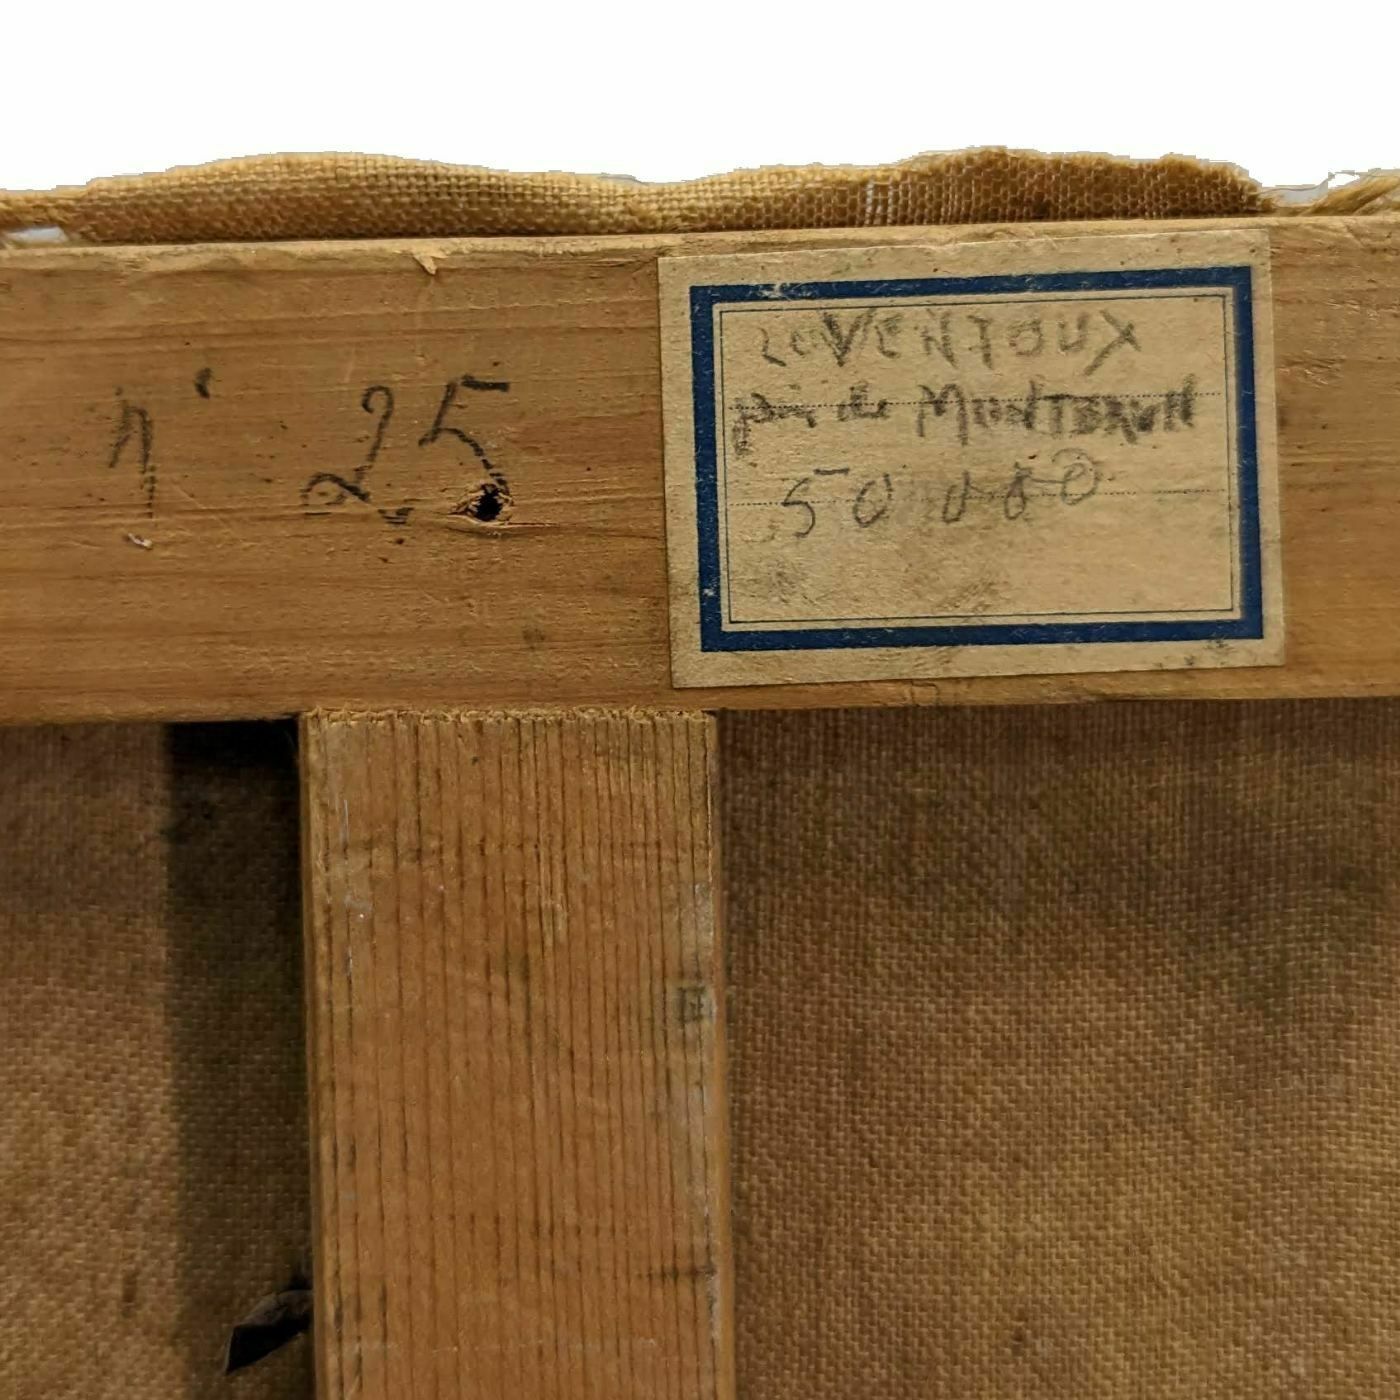 n° 25
Le VENTOUX
pris de MONTBRUN
50 000